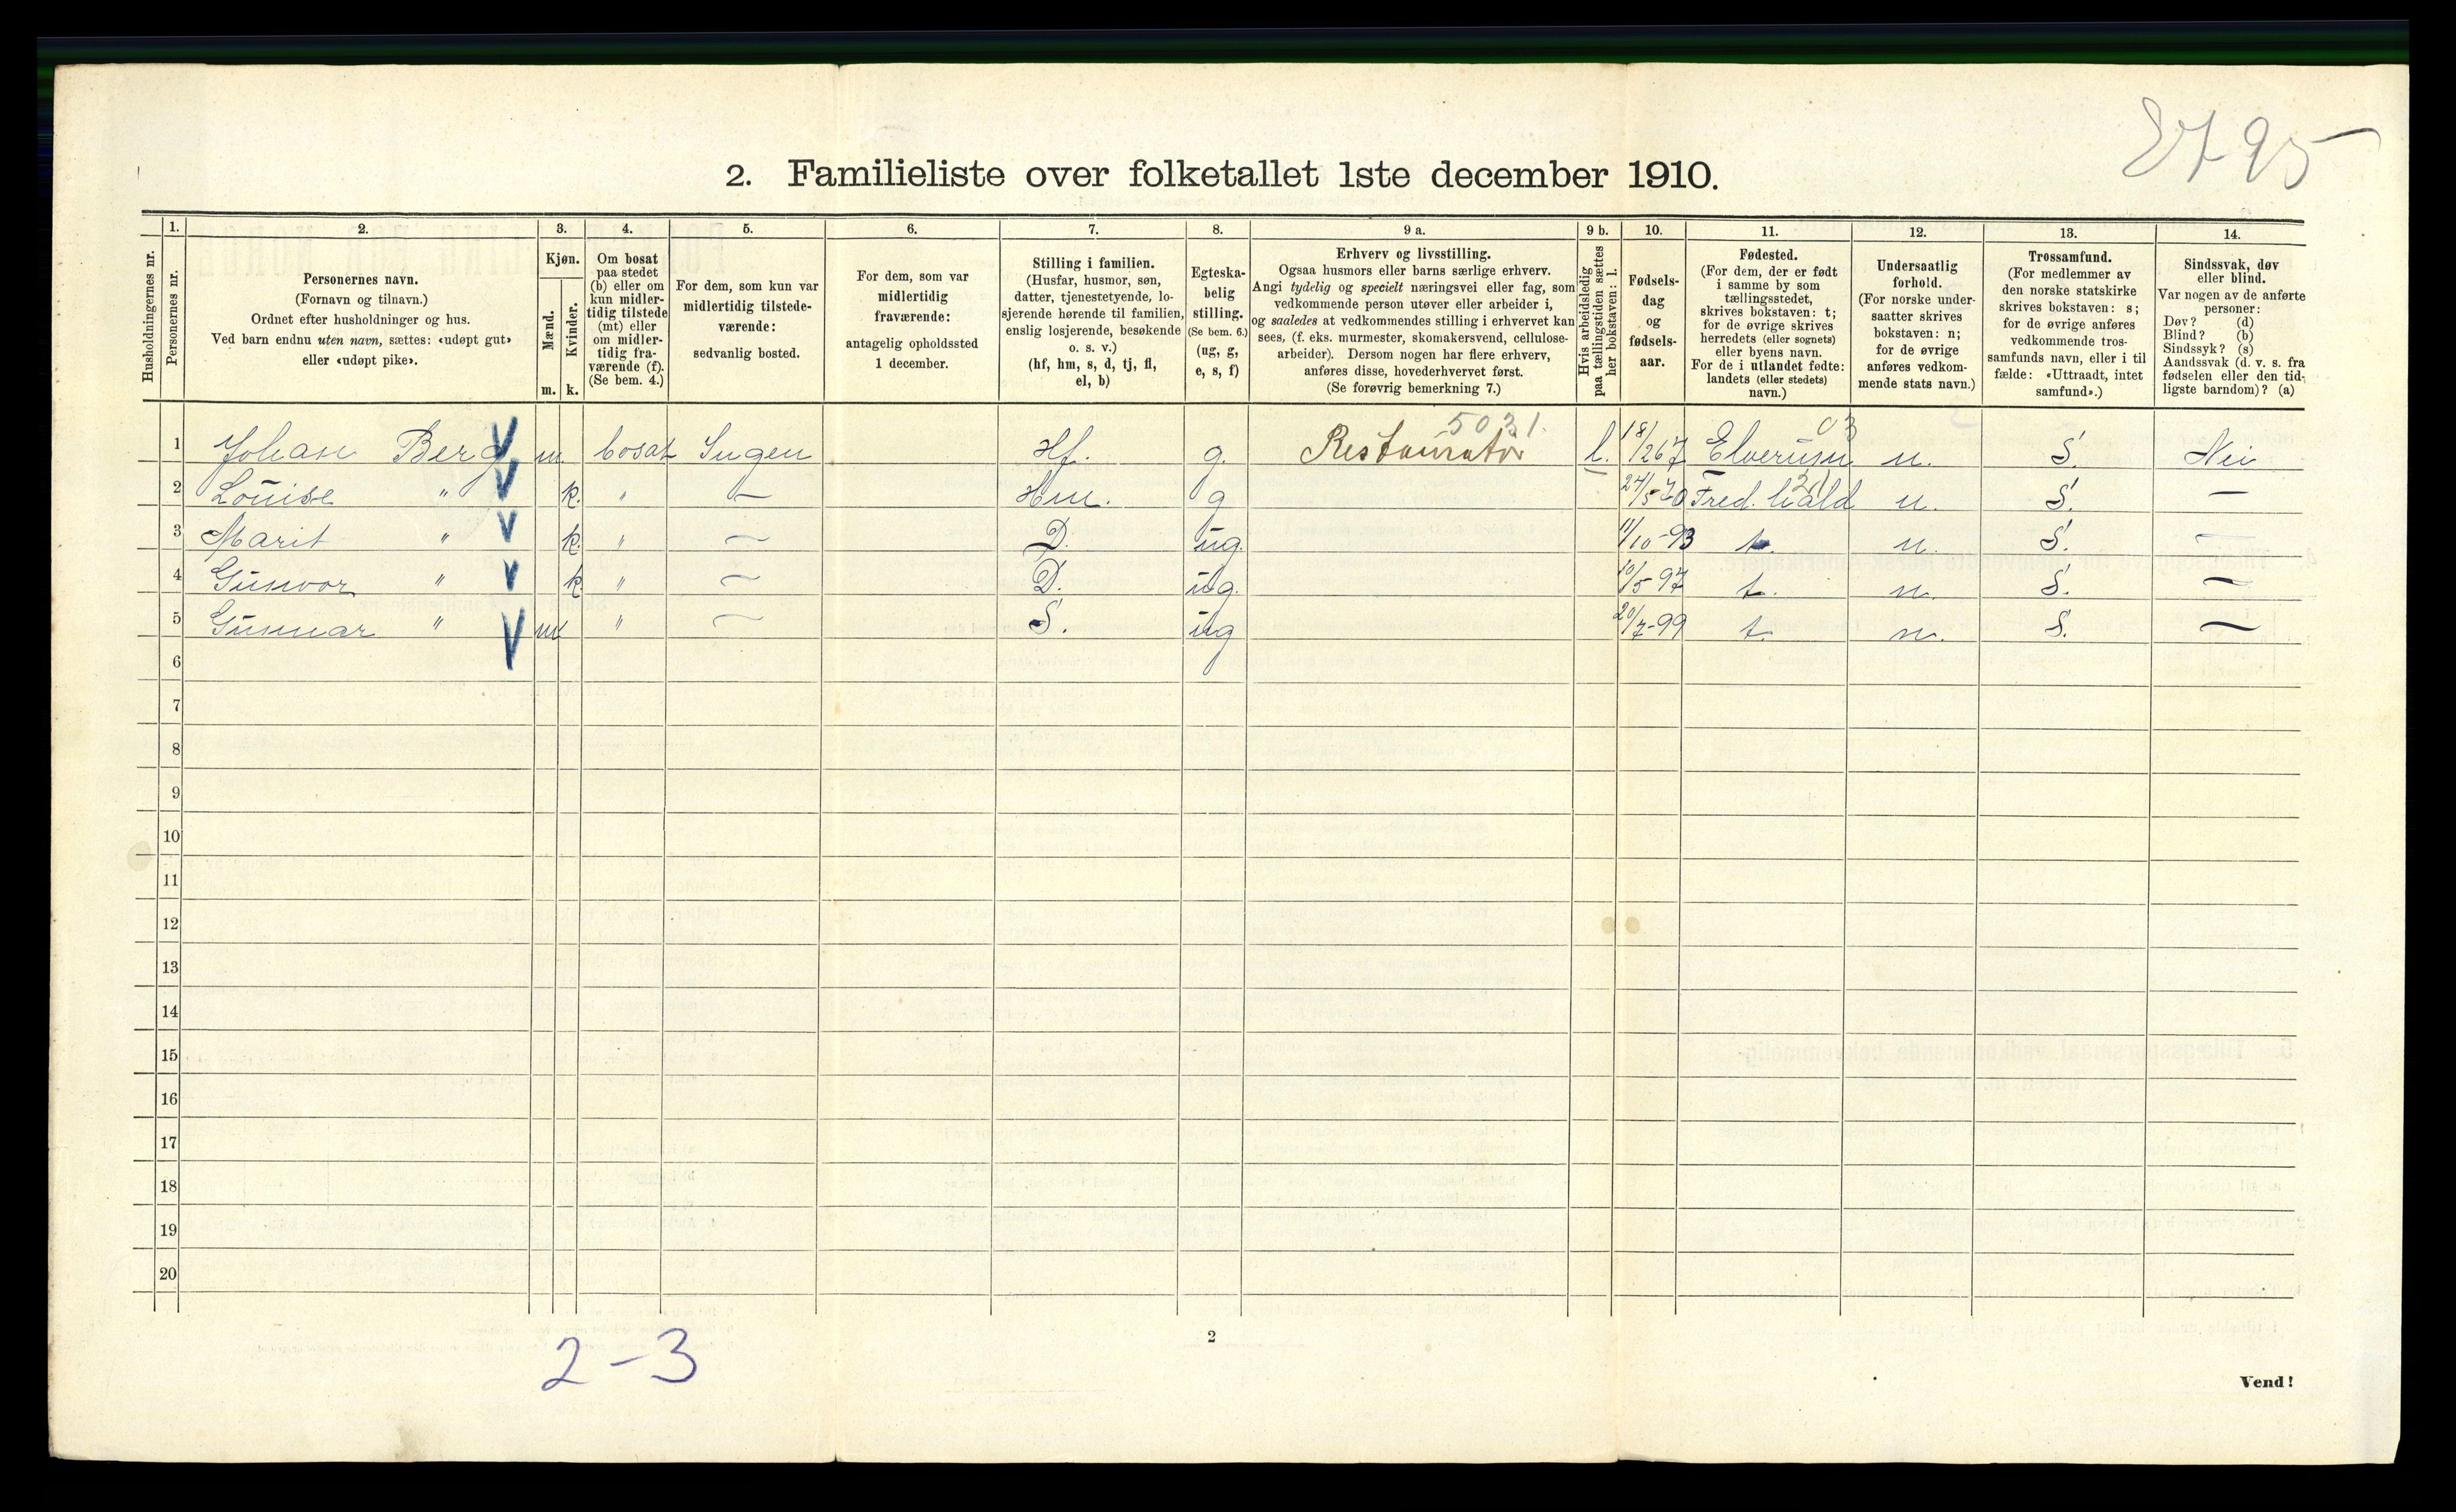 2795
2. Familieliste over folketallet 1ste december 1910.
Husholdningernes nr.
1. Personernes nr.
2. Personernes navn. (Fornavn og tilnavn.) Ordnet efter husholdninger og hus. Ved barn endnu uten navn, sættes: «udøpt gut» eller «udøpt pike».
3. Kjøn. Mænd. m. Kvinder. k.
4. Om bosat paa stedet (b) eller om kun midlertidig tilstede (mt) eller om midlertidig fraværende (f). (Se bem. 4.)
5. For dem, som kun var midlertidig tilstedeværende: sedvanlig bosted.
6. For dem, som var midlertidig fraværende: antagelig opholdssted 1 december.
7. Stilling i familien. (Husfar, husmor, søn, datter, tjenestetyende, losjerende hørende til familien, enslig losjerende, besøkende o. s. v.) (hf, hm, s, d, tj, fl, el, b)
8. Egteskabelig stilling. (Se bem. 6.) (ug, g, e, s, f)
9 a. Erhverv og livsstilling. Ogsaa husmors eller barns særlige erhverv. Angi tydelig og specielt næringsvei eller fag, som vedkommende person utøver eller arbeider i, og saaledes at vedkommendes stilling i erhvervet kan sees, (f. eks. murmester, skomakersvend, cellulosearbeider). Dersom nogen har flere erhverv, anføres disse, hovederhvervet først. (Se forøvrig bemerkning 7.)
9 b. Hvis arbeidsledig paa tællingstiden sættes her bokstaven: l.
10. Fødselsdag og fødselsaar.
11. Fødested. (For dem, der er født i samme by som tællingsstedet, skrives bokstaven: t; for de øvrige skrives herredets (eller sognets) eller byens navn. For de i utlandet fødte: landets (eller stedets) navn.)
12. Undersaatlig forhold. (For norske undersaatter skrives bokstaven: n; for de øvrige anføres vedkommende stats navn.)
13. Trossamfund. (For medlemmer av den norske statskirke skrives bokstaven: s; for de øvrige anføres vedkommende trossamfunds navn, eller i tilfælde: «Uttraadt, intet samfund».)
14. Sindssvak, døv eller blind. Var nogen av de anførte personer: Døv? (d) Blind? (b) Sindssyk? (s) Aandssvak (d. v. s. fra fødselen eller den tidligste barndom)? (a)
5031. 03
1 Johan Berg m. bosat Ingen Hf. g. Restauratør l. 18/2 67 Elverum n. S. Nei
2 Louise " k. " — Hm. g 24/5 70 Fred. hald n. S. —
3 Marit " k. " — D. ug. 11/10-93 t. n. S. —
4 Gunvor " k. " — D. ug. 10/5-97 t. n. S. —
5 Gunnar " m " — S. ug 20/7-99 t. n. S. —
6
7
8
9
10
11
12
13
14
15
16
17
18
19
20
2-3
2
Vend!